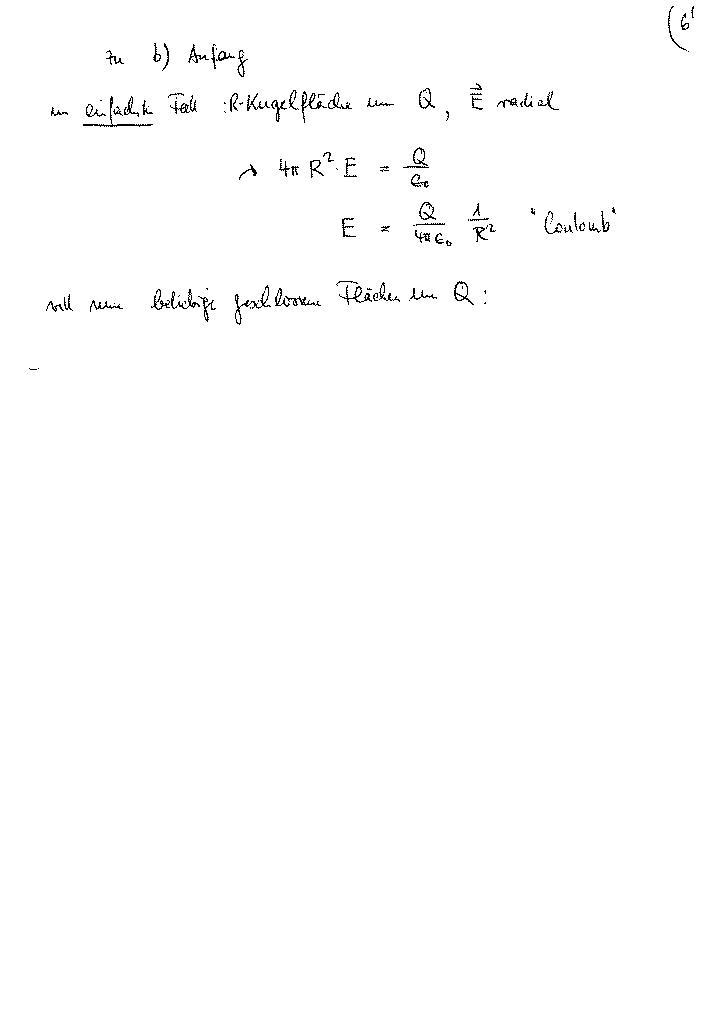 (6'
zu b) Anfang
im einfachsten Fall : R-Kugelfläche um Q, E⃗ radial
→ 4π R² · E = Q/ε₀
E = Q/4πε₀ 1/R² "Coulomb"
beliebige geschlossene Flächen um Q :